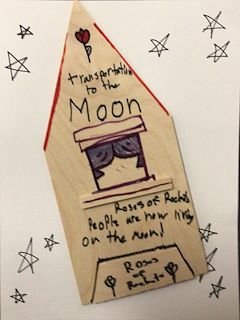 transportation
to the
Moon
Roses of Rochés
People are now living
on the moon!
Roses
of